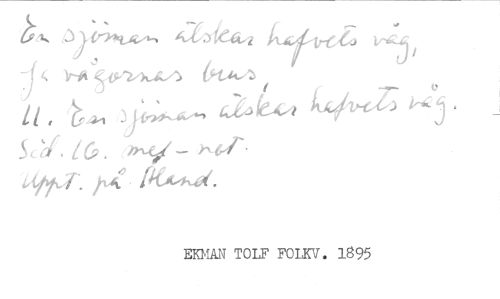 En sjöman älskar hafvets våg,
Ja vågornas brus,
11. En sjöman älskar hafvets våg.
Sid. 16. mel-not.
Uppt. på Åland.
EKMAN TOLF FOLKV. 1895